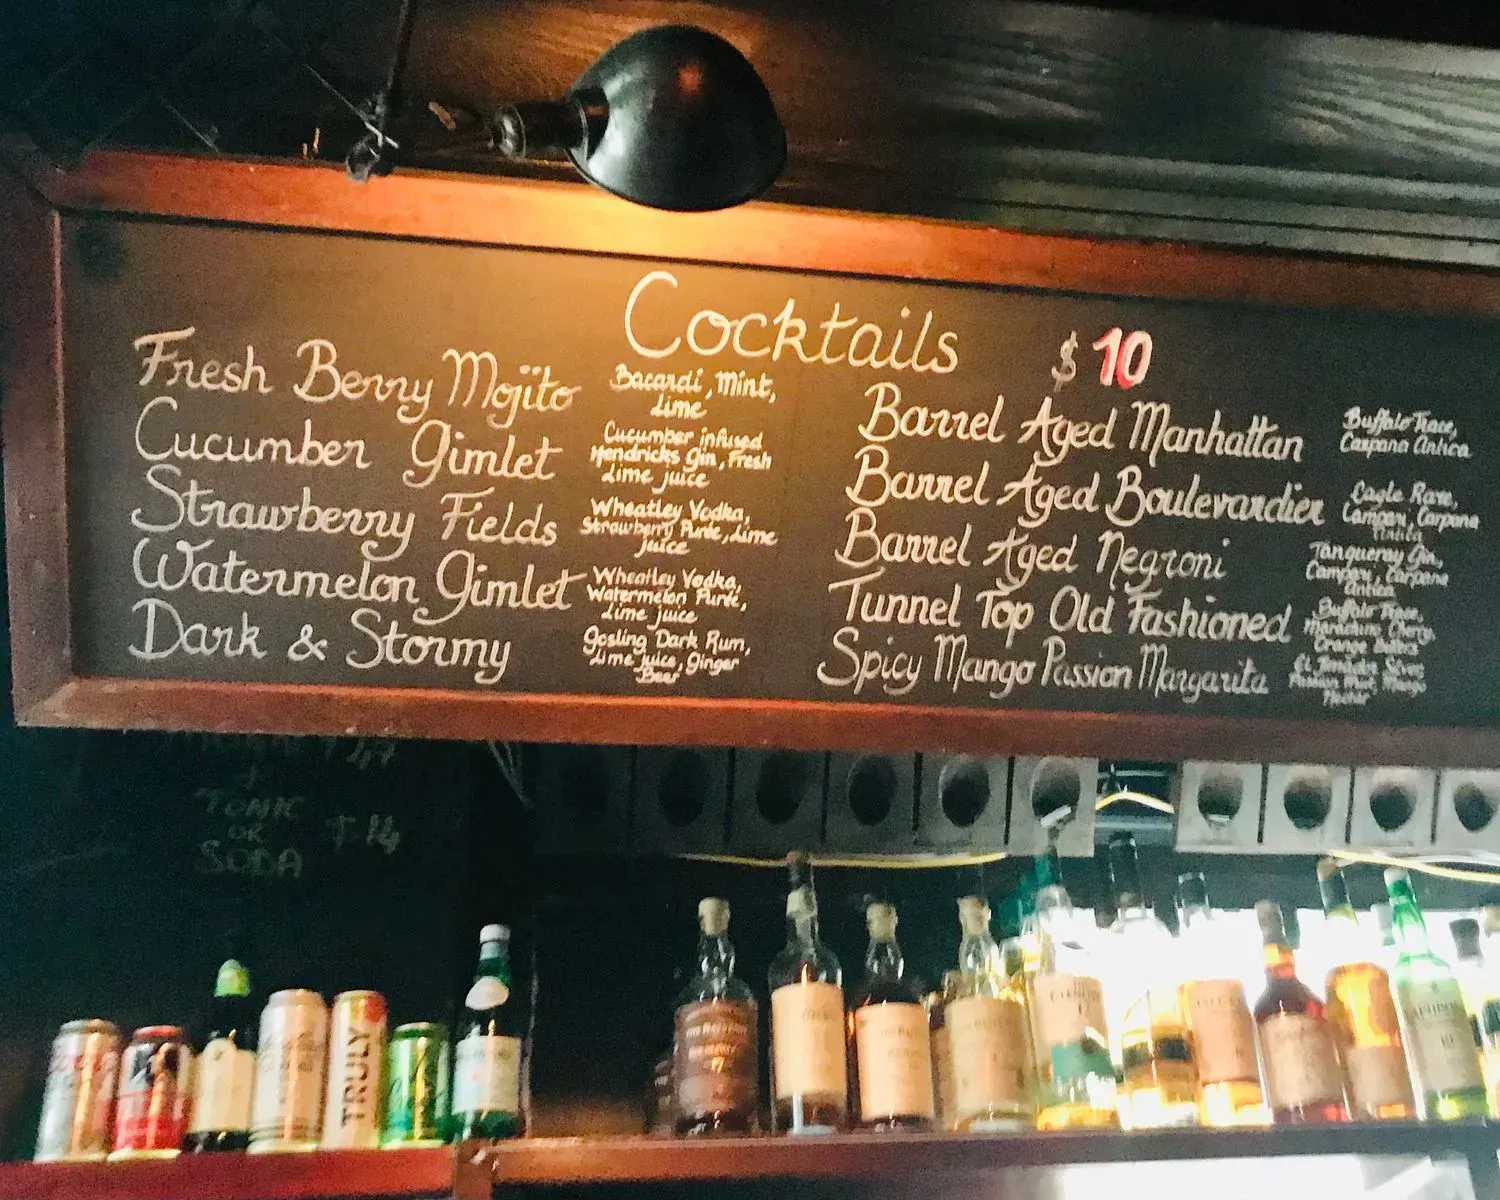 Cocktails $10
Fresh Berry Mojito
Bacardi, Mint,
Lime
Cucumber Gimlet
Cucumber infused
Hendricks Gin, Fresh
Lime juice
Strawberry Fields
Wheatley Vodka,
Strawberry Purée, Lime
juice
Watermelon Gimlet
Wheatley Vodka,
Watermelon Purée,
Lime juice
Dark & Stormy
Gosling Dark Rum,
Lime juice, Ginger
Beer
Barrel Aged Manhattan
Buffalo Trace,
Carpana Antica
Barrel Aged Boulevardier
Eagle Rare,
Campari, Carpana
Antica
Barrel Aged Negroni
Tanqueray Gin,
Campari, Carpana
Antica
Tunnel Top Old Fashioned
Buffalo Trace,
Maraschino Cherry,
Orange Bitters
Spicy Mango Passion Margarita
Silver,
Passion Fruit, Mango
Nectar
TONIC
OR
SODA
TRULY